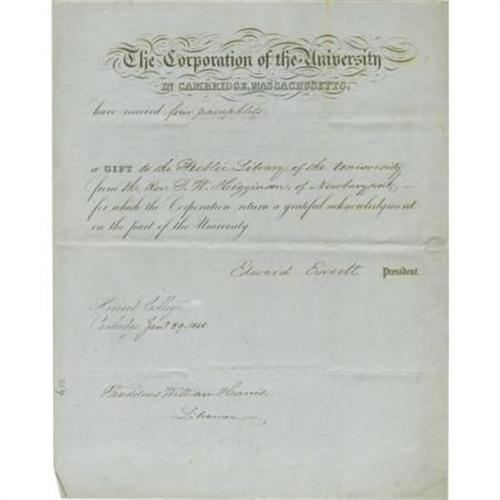 The Corporation of the University
IN CAMBRIDGE, MASSACHUSETTS,
have received four pamphlets
a GIFT to the Public Library of the University
from the Rev. T. W. Higginson, of Newburyport,
for which the Corporation return a grateful acknowledgment
on the part of the University.
Edward Everett President.
Harvard College
Cambridge, Jany 29, 1848.
Thaddeus William Harris,
Librarian